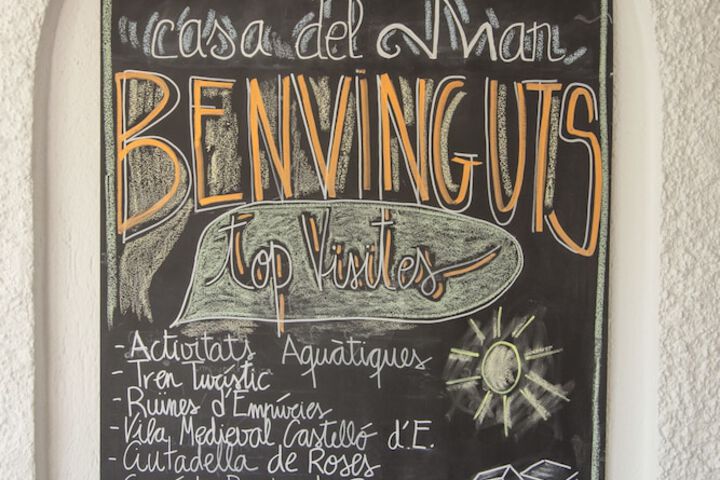 casa del Mar
BENVINGUTS
top Visites
- Activitats Aquàtiques
- Tren Turístic
- Ruïnes d'Empúries
- Vila Medieval Castelló d'E.
- Ciutadella de Roses